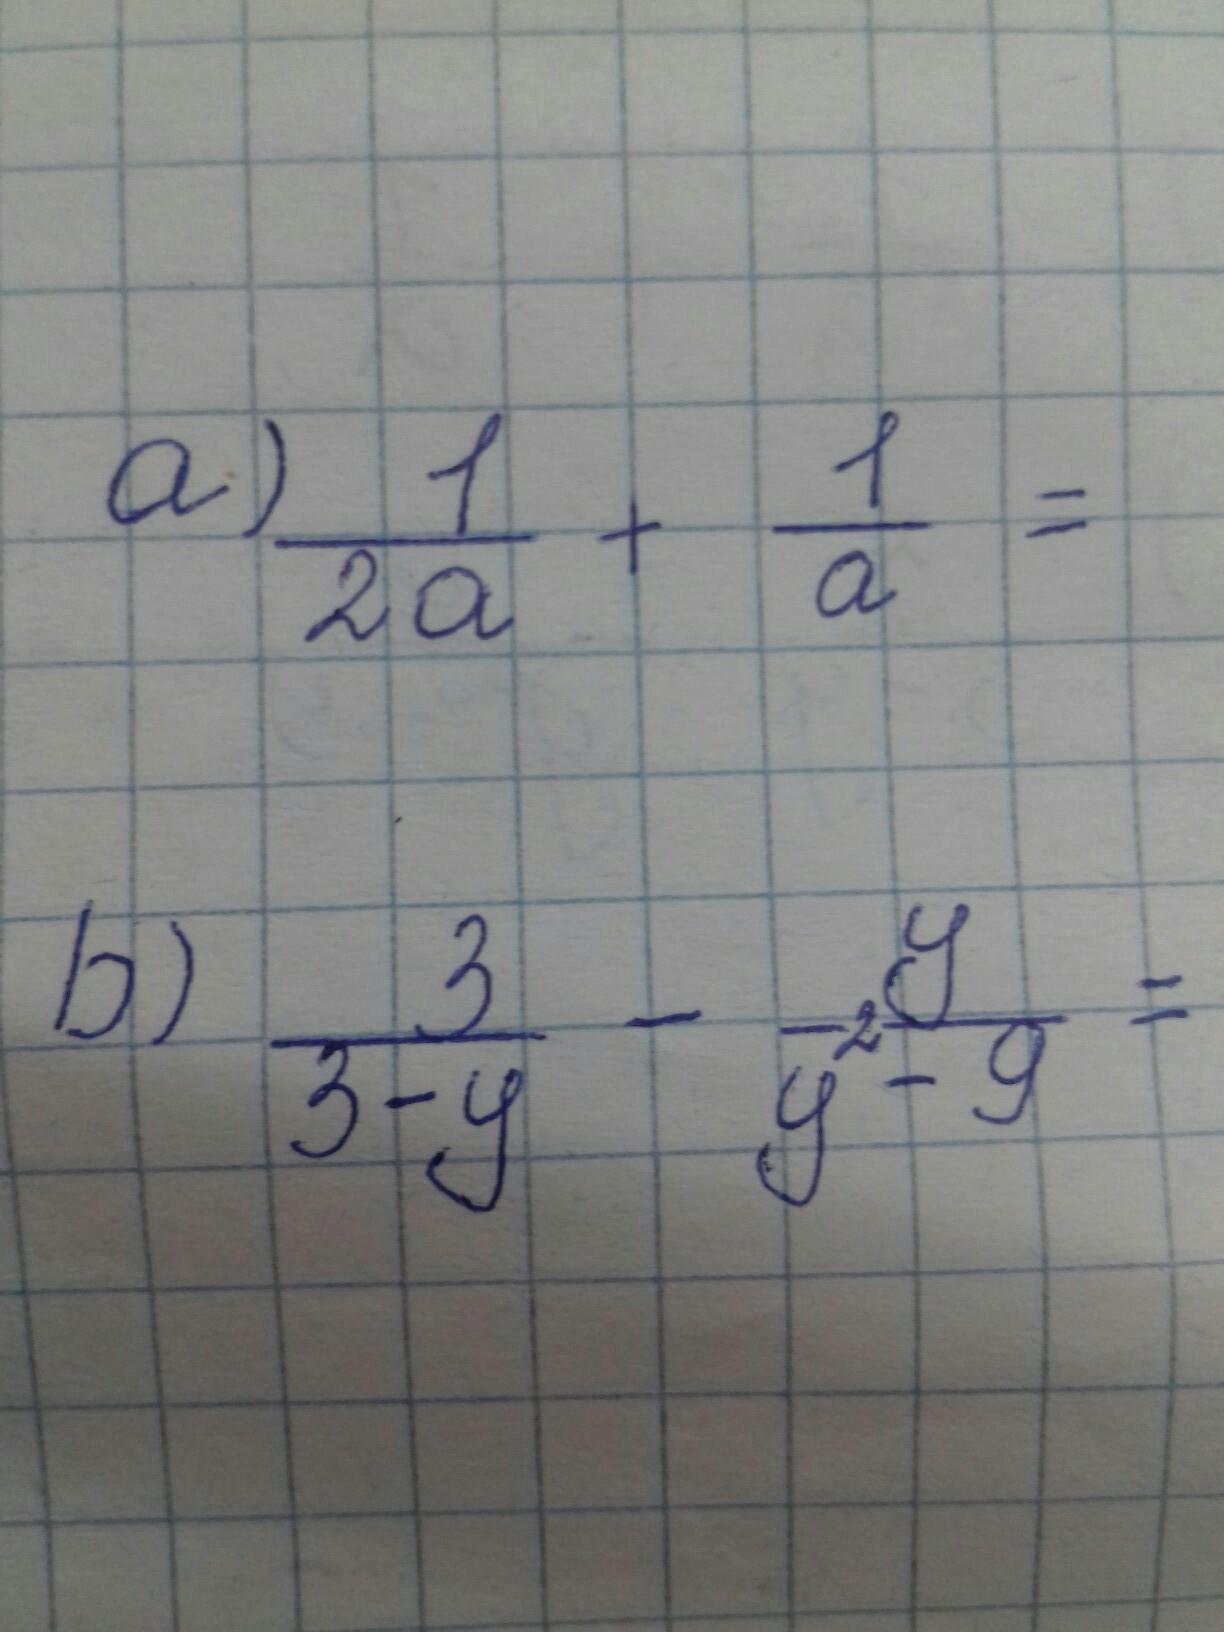 a) 1/2a + 1/a =
b) 3/3-y - y/y²-9 =